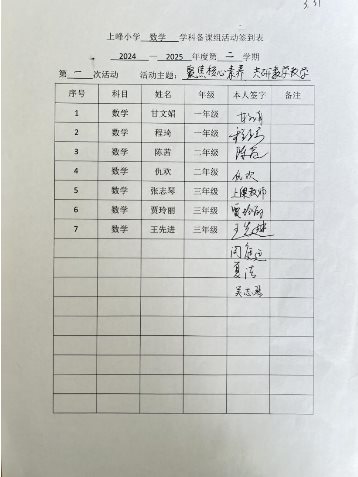 3.31
上峰小学 数学 学科备课组活动签到表
2024 — 2025 年度第 二 学期
第 一 次活动 活动主题: 聚焦核心素养 共研数学教学
序号 科目 姓名 年级 本人签字 备注
1 数学 甘文娟 一年级 甘文娟
2 数学 程琦 一年级 程琦
3 数学 陈茜 二年级 陈茜
4 数学 仇欢 二年级 仇欢
5 数学 张志琴 三年级
6 数学 贾玲丽 三年级 贾玲丽
7 数学 王先进 三年级 王先进
夏洁